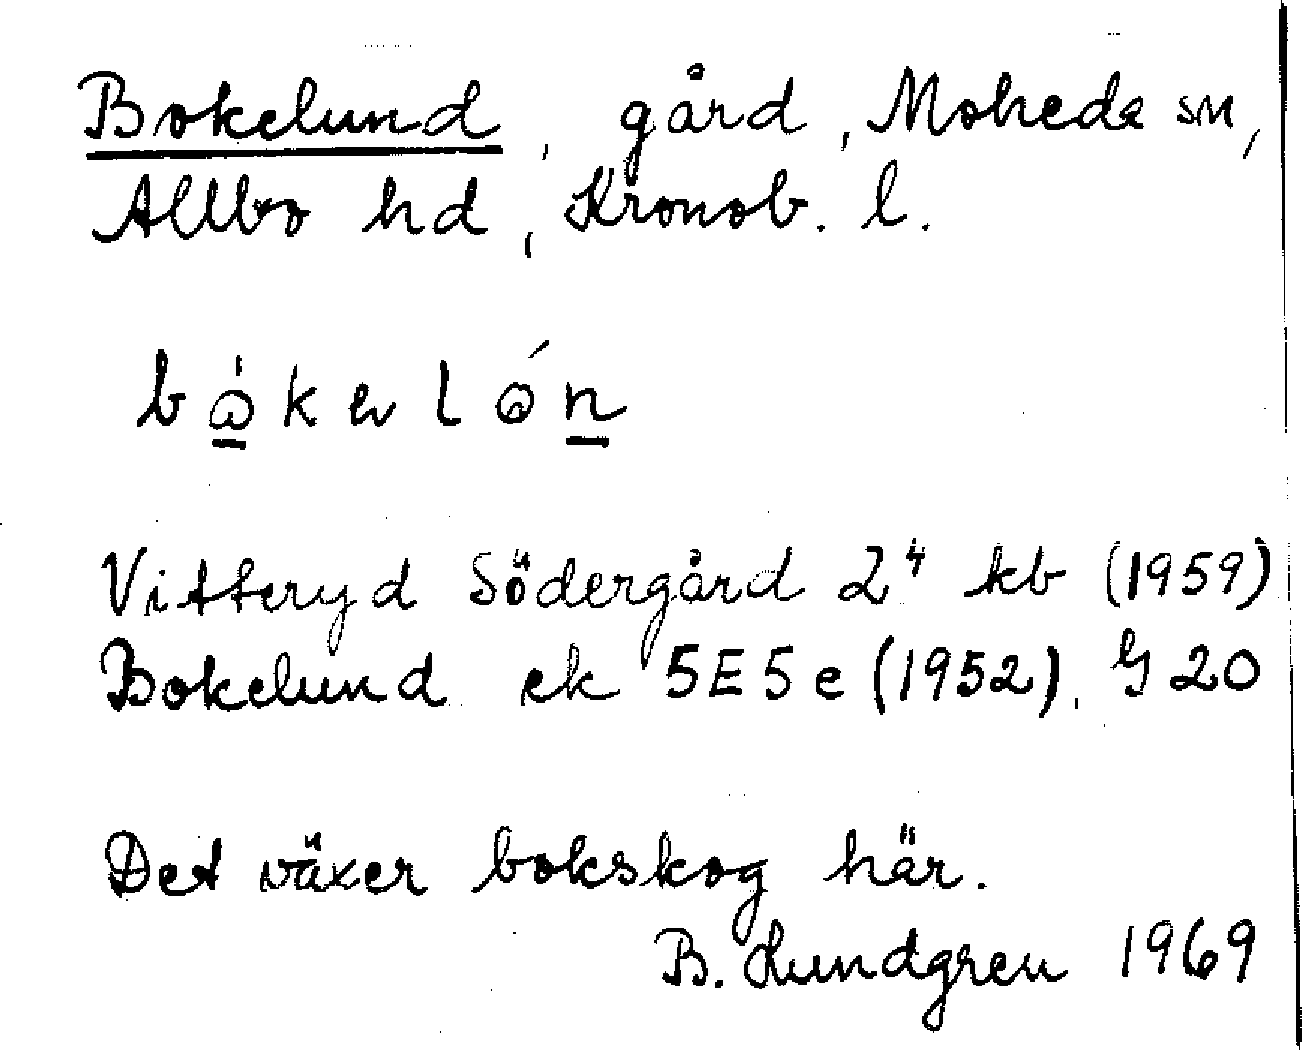 Bokelund, gård, Moheda sn,
Allbo hd, Kronob. l.
Vitteryd Södergård 2⁴ kb (1959)
Bokelund ek 5E5e (1952), G 20
Det växer bokskog här.
B. Lundgren 1969